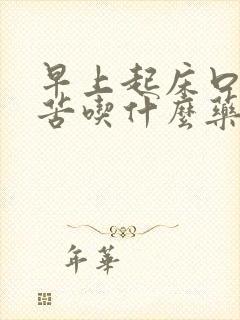 早上起床口
苦喫什麽藥
年華